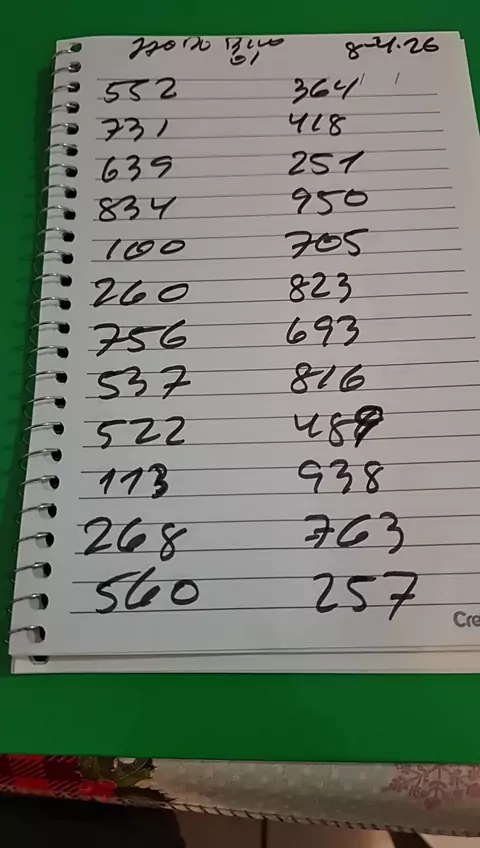 8-4-26
01
552 364
731 418
639 251
834 950
100 705
260 823
756 693
537 816
522 489
113 938
268 763
560 257
Cre